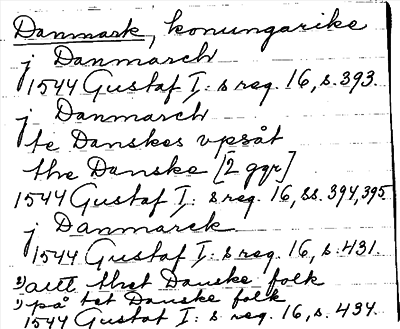 Danmark, konungarike
j Danmarch
1544 Gustaf I: s reg. 16, s. 393.
j Danmarch
te Danskes vpsåt
the Danske [2 ggr]
1544 Gustaf I: s reg. 16, ss. 394, 395
j Danmarck
1544 Gustaf I: s reg. 16, s. 431.
autt thet Danske folk
på tet Danske folk
1544 Gustaf I: s reg. 16, s. 434.